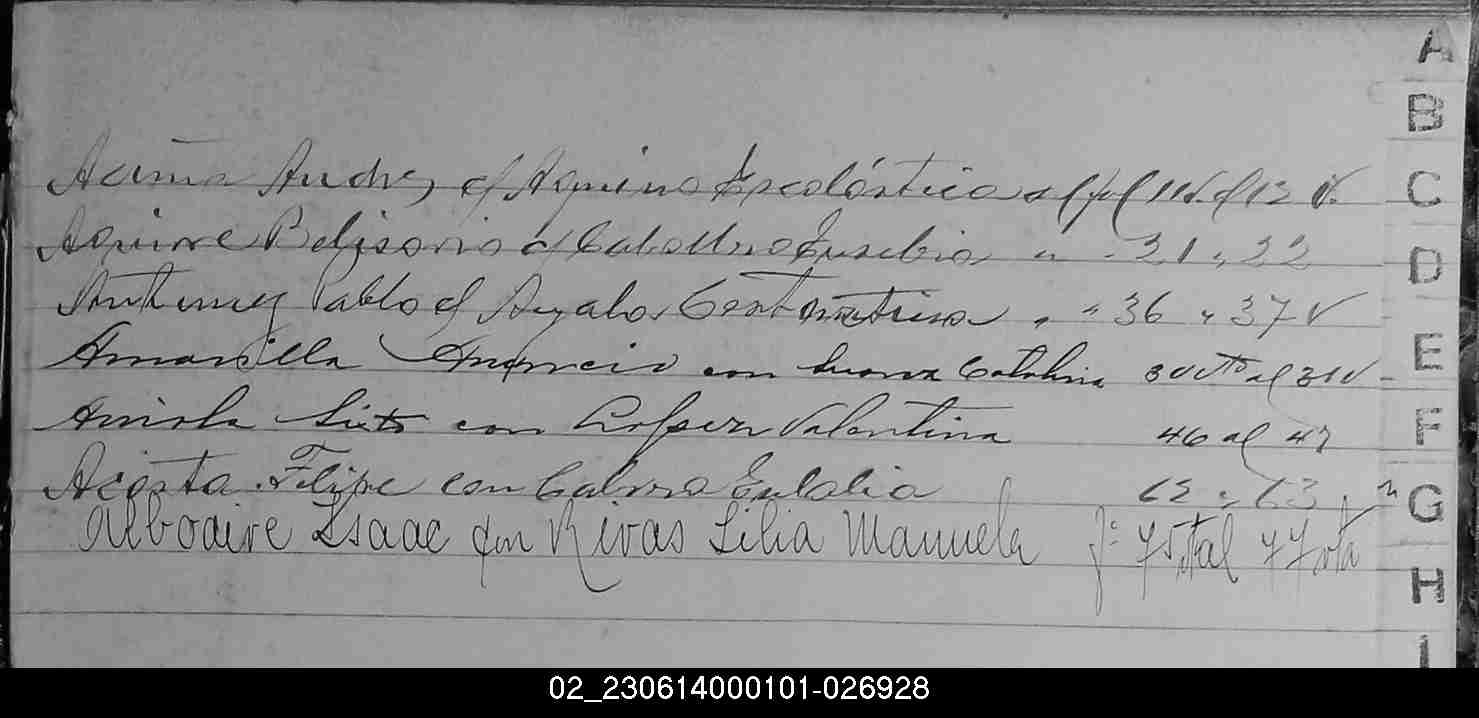 Acuña Andres c/ Aquino Escolástica al fol 11v. al 12 v.
Aguirre Belisario c/ Caballero Eusebia " " 21 " 22
Antunez Pablo c/ Ayala " " 36 " 37 v
Amarilla Anuncio con Catalina 30 vto al 31 v
Arriola Sixto con Lopez Valentina 46 al 47
Acosta Felipe con Cabrera Eulalia 62 " 63
Albodire Isaac con Rivas Lilia Manuela f: 75 al 77 vta
A
B
C
D
E
F
G
H
I
02_230614000101-026928